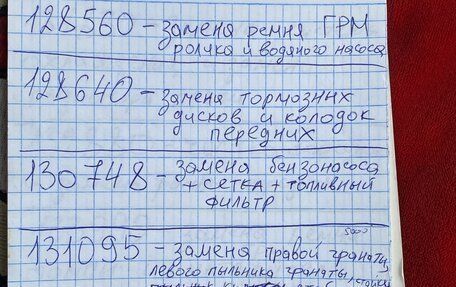 128560 - замена ремня ГРМ
ролика и водяного насоса
128640 - замена тормозных
дисков и колодок
передних
130748 - замена бензонасоса
+ сетка + топливный
фильтр
5000
131095 - замена правой гранаты,
левого пыльника гранаты,